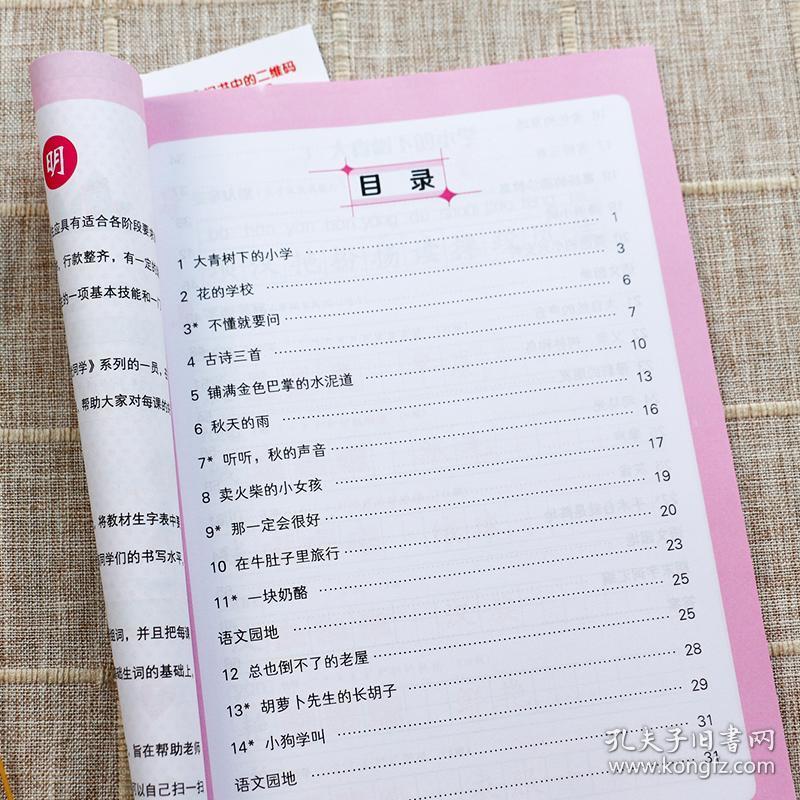 书中的二维码
明
应具有适合各阶段要求
行款整齐，有一定的
的一项基本技能和一
同学》系列的一员，
帮助大家对每课的
将教材生字表中
同学们的书写水平
组词，并且把每课
础生词的基础上
旨在帮助老师
可以自己扫一扫
目 录
1 大青树下的小学 1
2 花的学校 3
3* 不懂就要问 6
4 古诗三首 7
5 铺满金色巴掌的水泥道 10
6 秋天的雨 13
7* 听听，秋的声音 16
8 卖火柴的小女孩 17
9* 那一定会很好 19
10 在牛肚子里旅行 20
11* 一块奶酪 23
语文园地 25
12 总也倒不了的老屋 25
13* 胡萝卜先生的长胡子 28
14* 小狗学叫 29
语文园地 31
31
孔夫子旧书网
www.kongfz.com